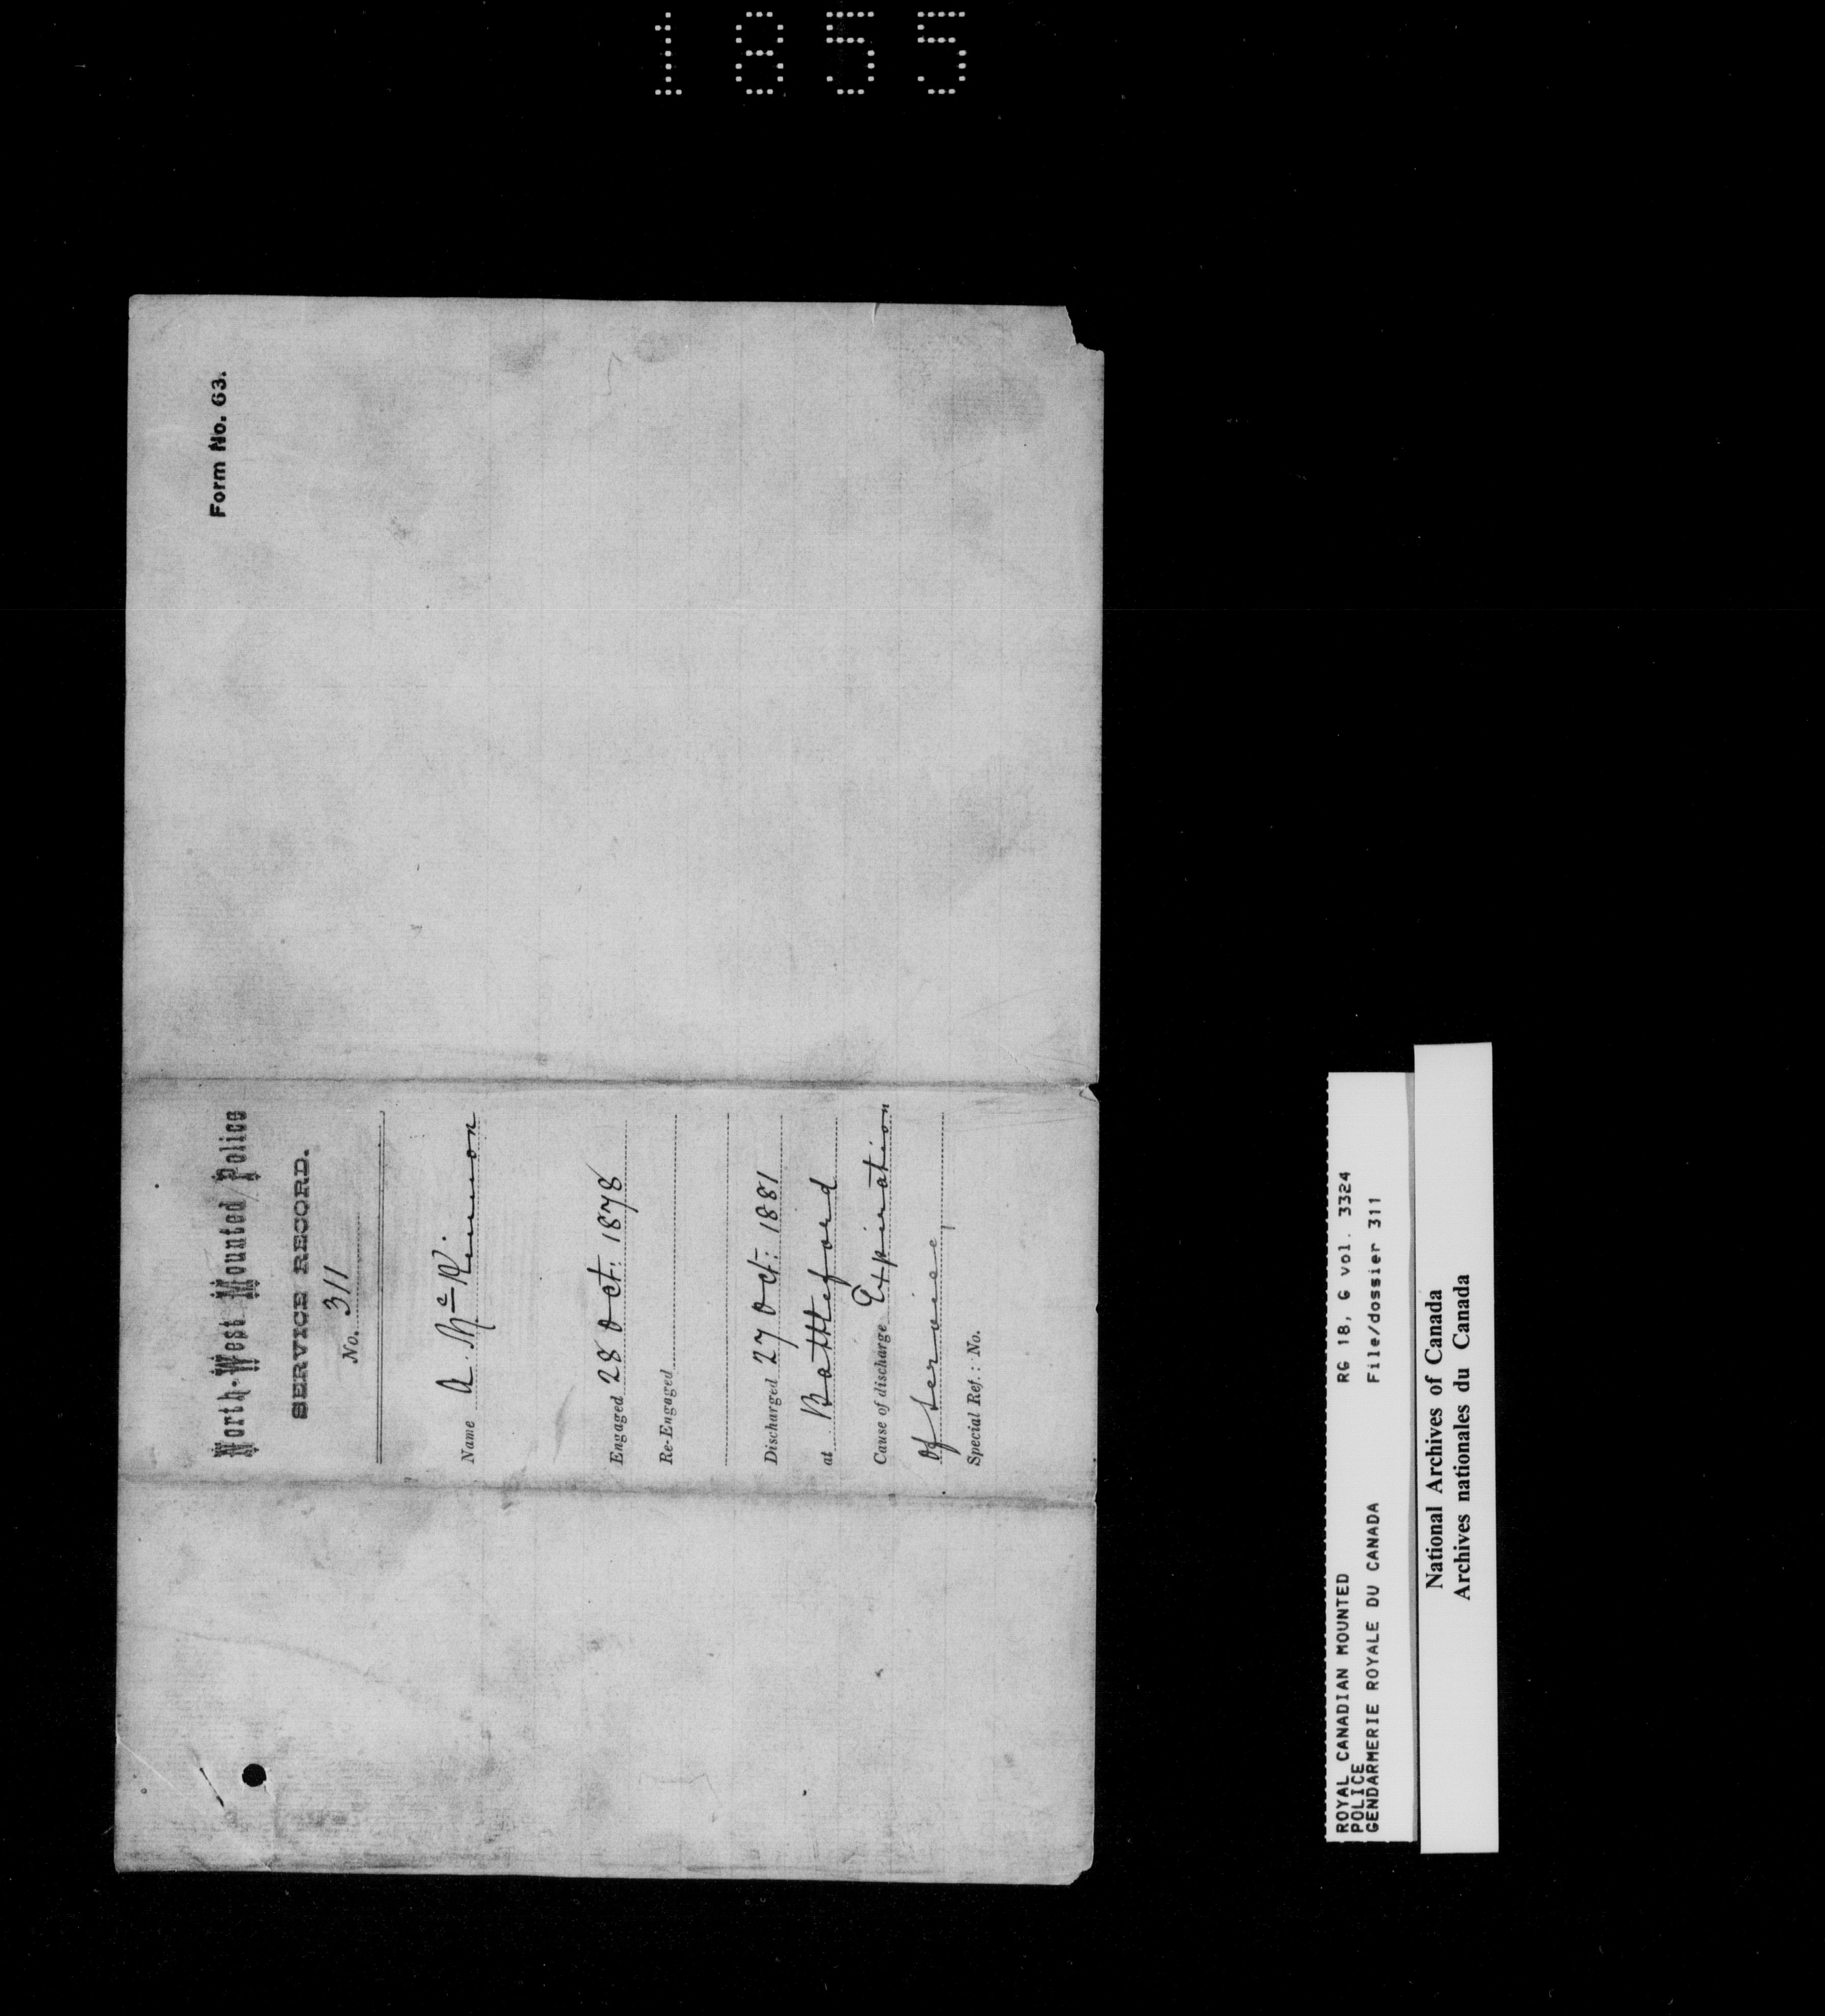 1855
Form No. 63.
North-West Mounted Police
SERVICE RECORD.
No. 311
Name A. McKinnon
Engaged 28 Oct: 1878
Re-Engaged
Discharged 27 Oct: 1881
at Battleford
Cause of discharge Expiration
of Service
Special Ref.: No.
ROYAL CANADIAN MOUNTED RG 18, G vol. 3324
POLICE
GENDARMERIE ROYALE DU CANADA File/dossier 311
National Archives of Canada
Archives nationales du Canada